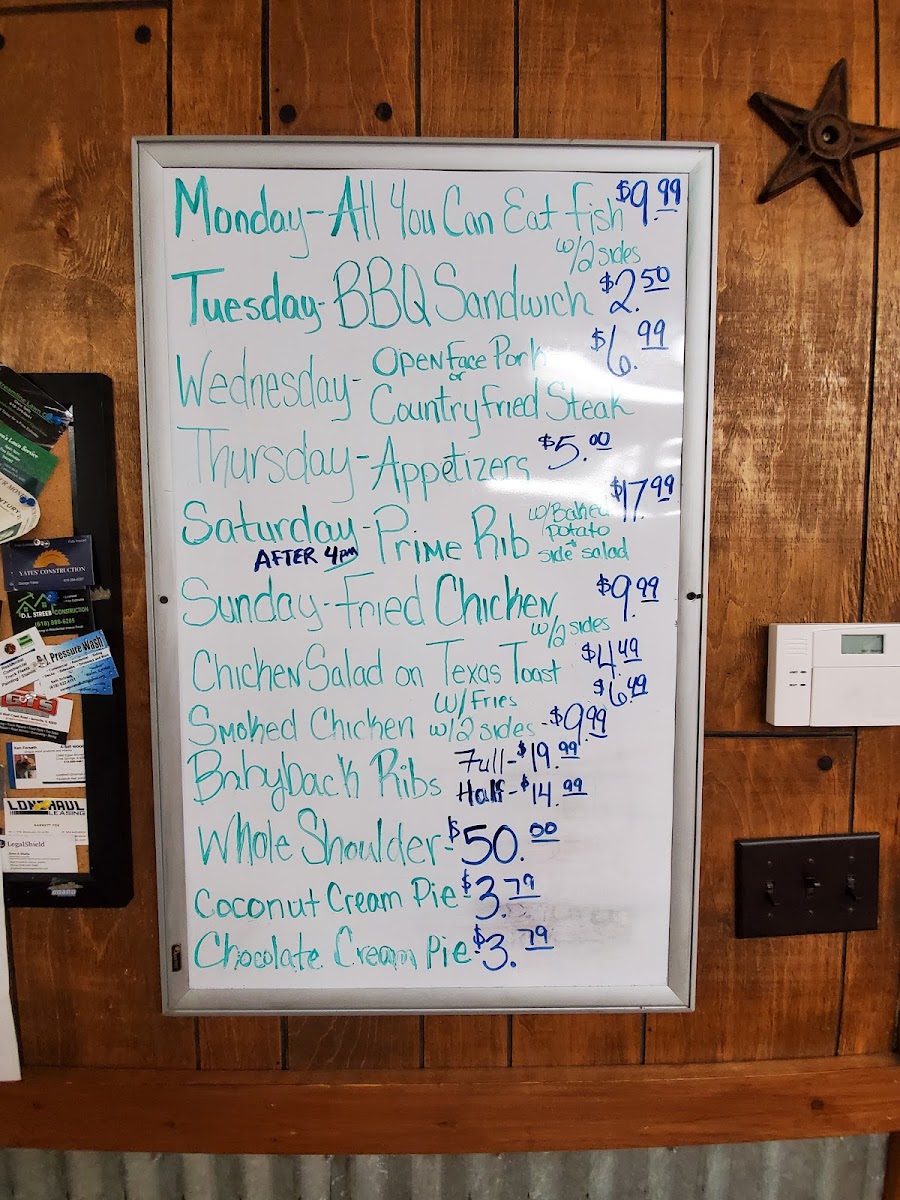 Monday - All You Can Eat Fish $9.99
w/2 sides
Tuesday - BBQ Sandwich $2.50
Wednesday - Open Face Pork $6.99
or
Country Fried Steak
Thursday - Appetizers $5.00
Saturday - Prime Rib w/Baked $17.99
potato
+
side salad
AFTER 4pm
Sunday - Fried Chicken $9.99
w/2 sides
Chicken Salad on Texas Toast $4.49
w/Fries $6.49
Smoked Chicken w/2 sides - $9.99
Babyback Ribs Full - $19.99
Half - $14.99
Whole Shoulder - $50.00
Coconut Cream Pie - $3.79
Chocolate Cream Pie - $3.79
YATES' CONSTRUCTION
D.L. STREEB CONSTRUCTION
Pressure Wash
LONGHAUL
LEASING
LegalShield